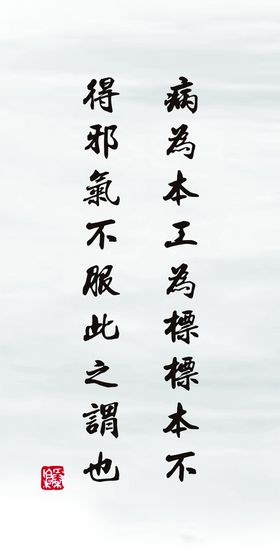 病為本工為標標本不
得邪氣不服此之謂也